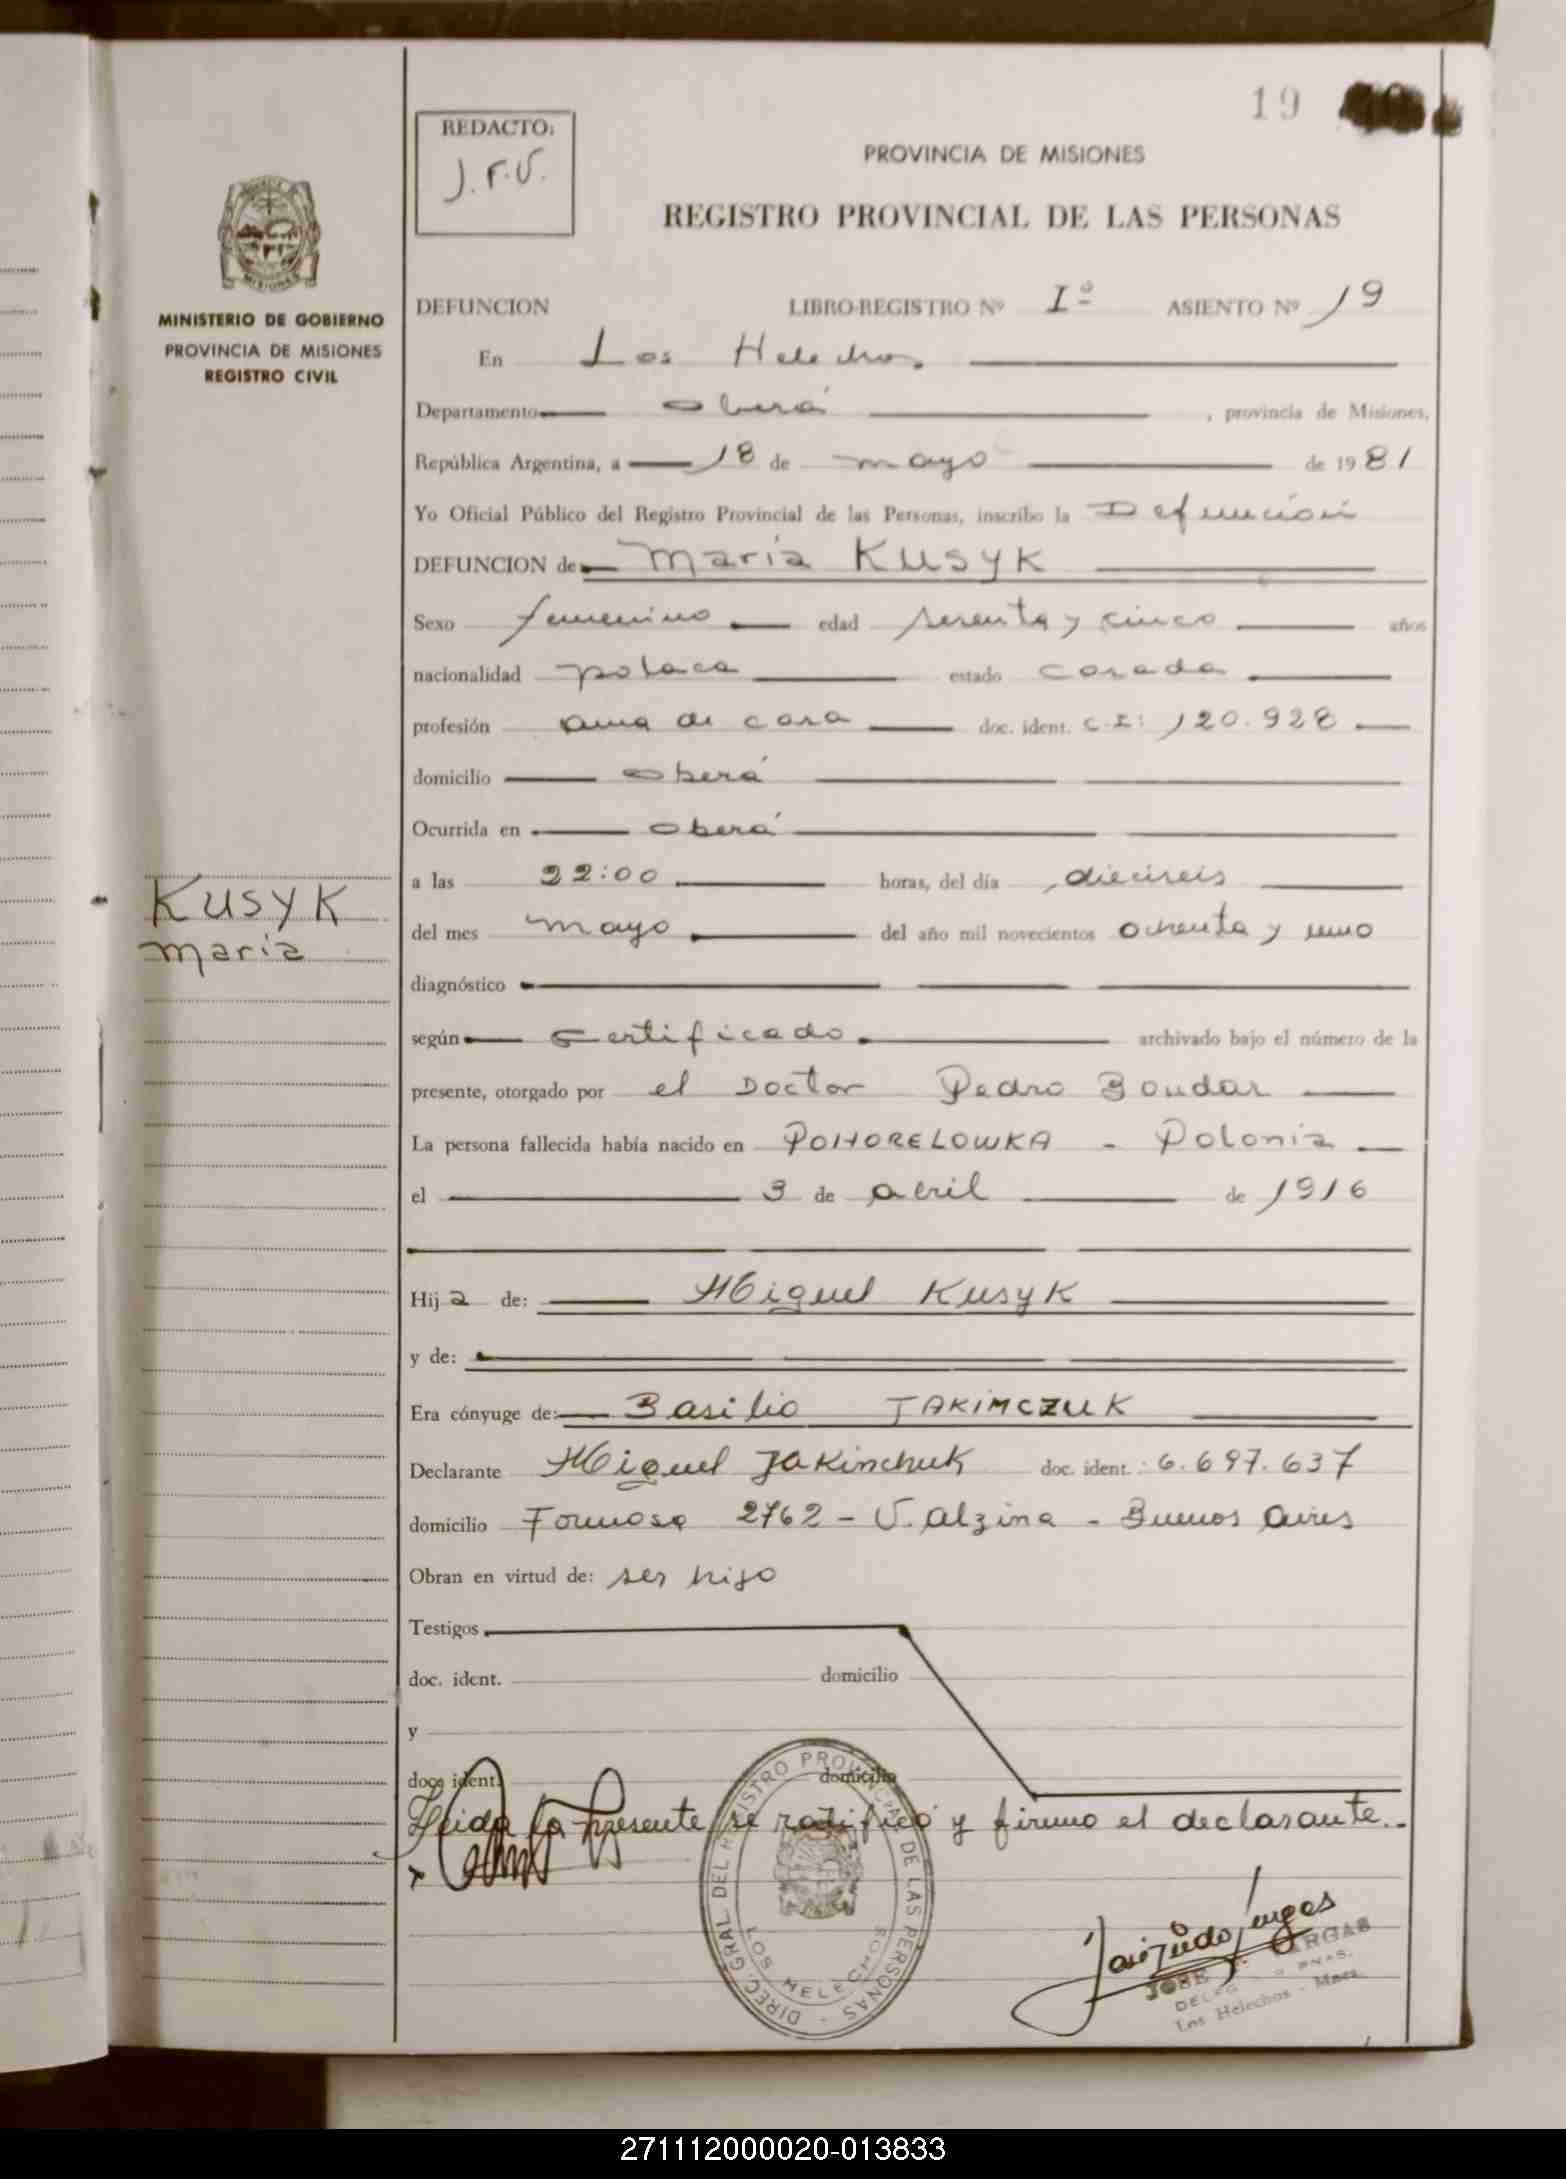 19
REDACTO:
J.F.V.
PROVINCIA DE MISIONES
REGISTRO PROVINCIAL DE LAS PERSONAS
MINISTERIO DE GOBIERNO
PROVINCIA DE MISIONES
REGISTRO CIVIL
DEFUNCION LIBRO-REGISTRO Nº Iº ASIENTO Nº 19
En Los Helechos.
Departamento Oberá, provincia de Misiones,
República Argentina, a 18 de mayo de 1981
Yo Oficial Público del Registro Provincial de las Personas, inscribo la Defunción
DEFUNCION de María KUSYK
Sexo femenino edad sesenta y cinco años
nacionalidad polaca estado casada
profesión ama de casa doc. ident. C.I: 120.928
domicilio Oberá
Ocurrida en Oberá
a las 22:00 horas, del día dieciseis
KUSYK
María
del mes mayo del año mil novecientos ochenta y uno
diagnóstico
según certificado. archivado bajo el número de la
presente, otorgado por el Doctor Pedro Bondar
La persona fallecida había nacido en POHORELOWKA - Polonia
el 3 de abril de 1916
Hija de: Miguel Kusyk
y de:
Era cónyuge de: Basilio JAKIMCZUK
Declarante Miguel Jakinchuk doc. ident.: 6.697.637
domicilio Formosa 2762 - V. Alzina - Buenos Aires
Obran en virtud de: ser hijo
Testigos
doc. ident. domicilio
y
doc. ident. domicilio
Leida la presente, se ratificó y firmo el declarante..
DIREC. GRAL. DEL REGISTRO PROVINCIAL DE LAS PERSONAS
LOS HELECHOS
JOSE
Los Helechos - Mnes.
271112000020-013833